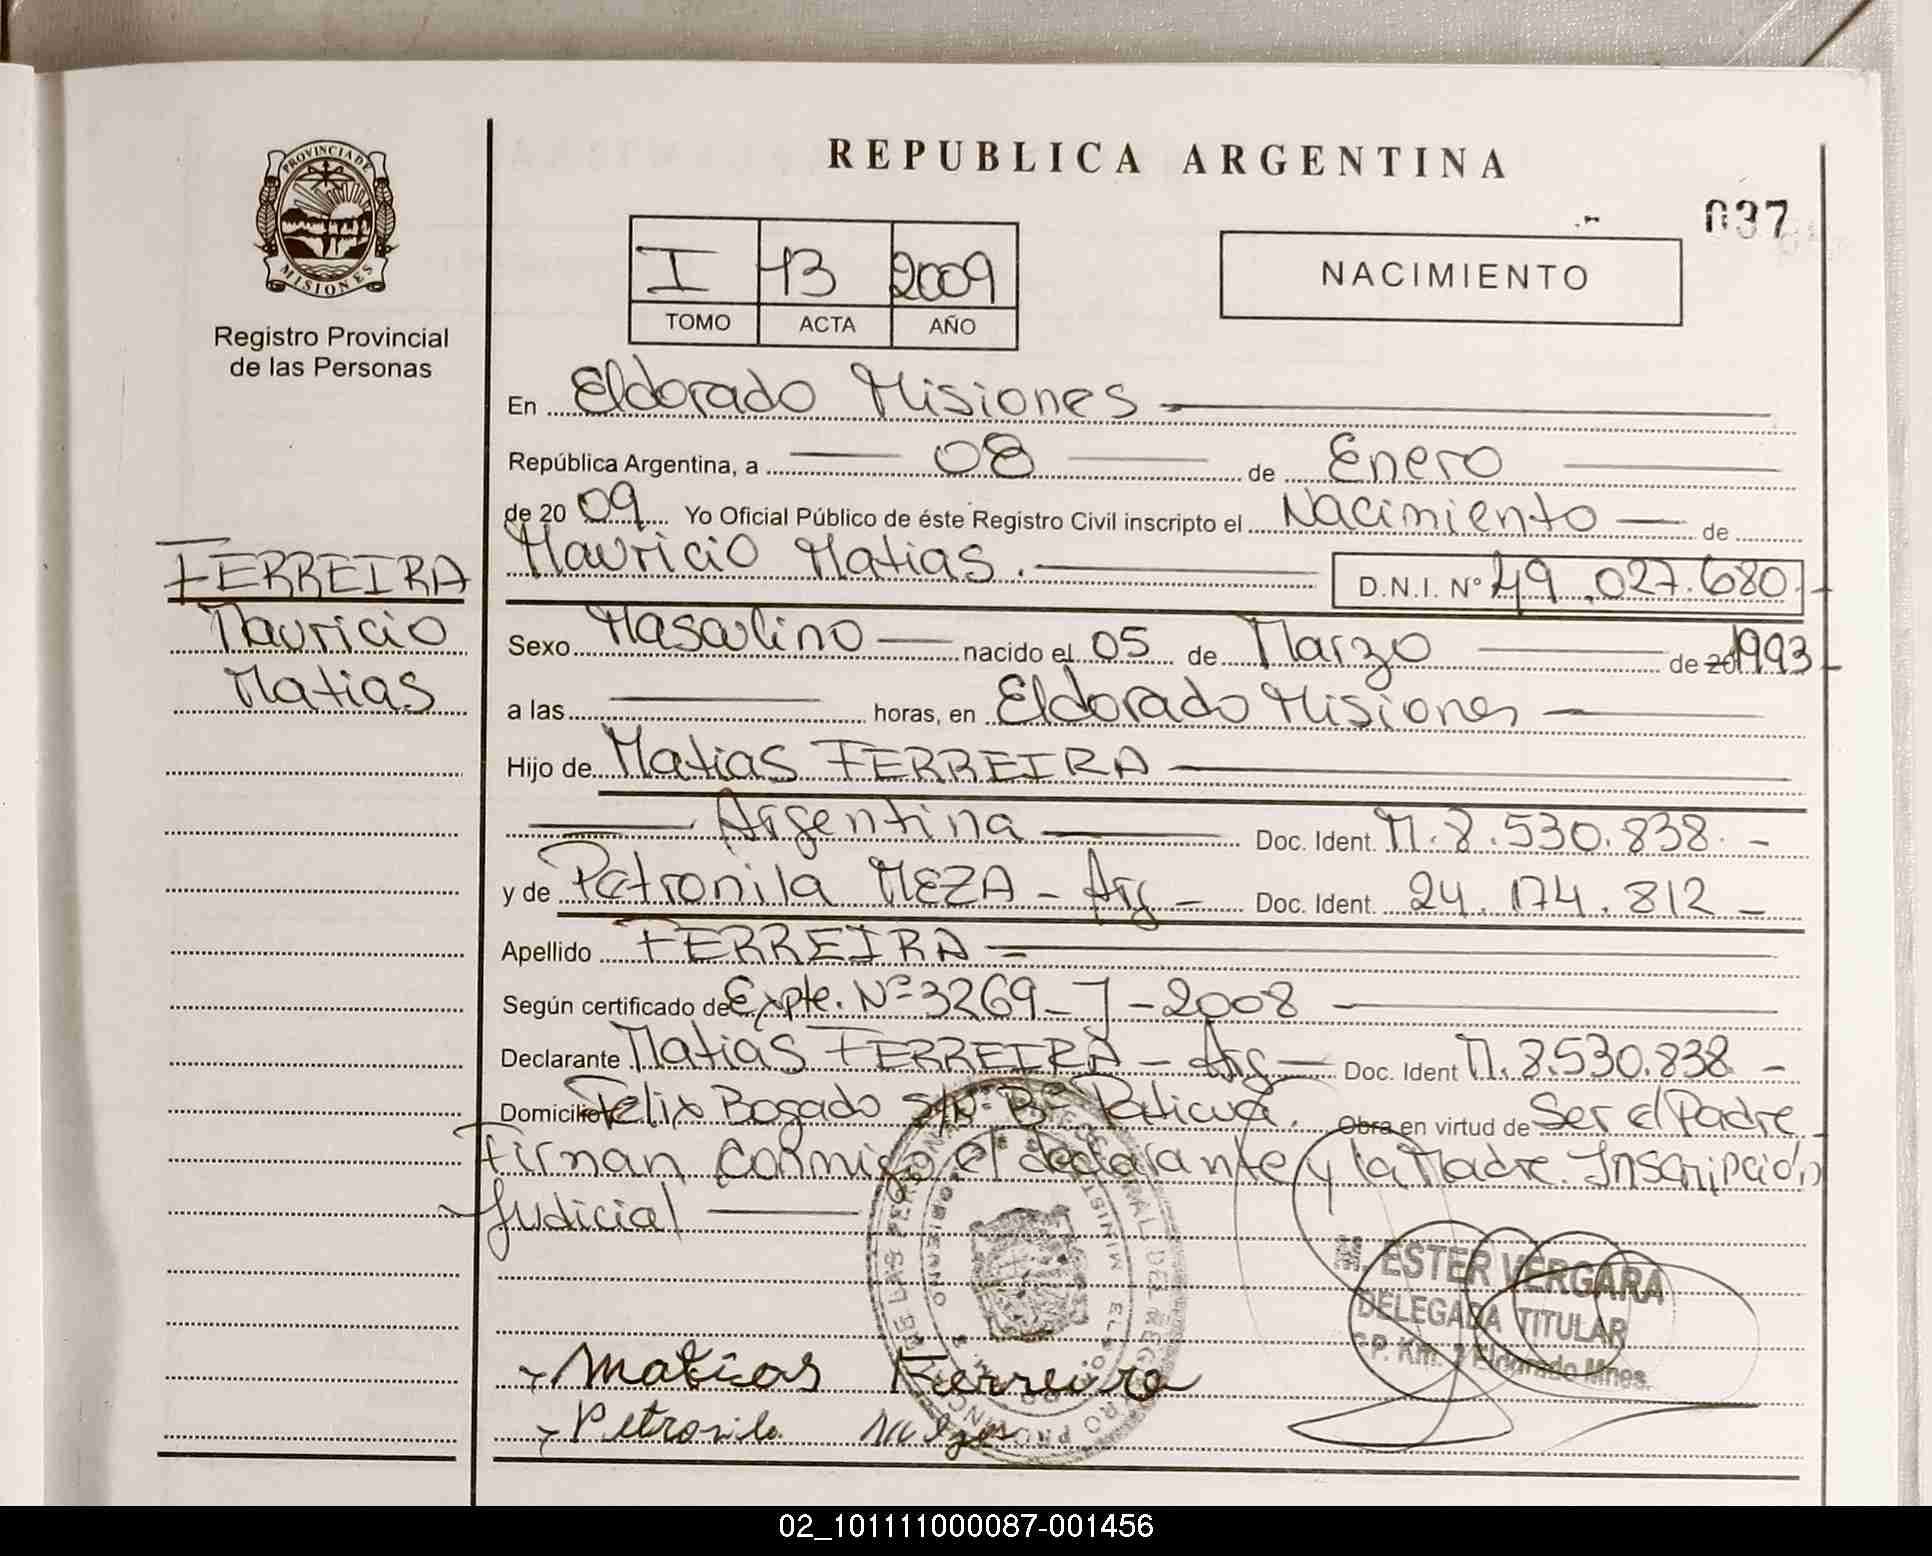 PROVINCIA DE
MISIONES
Registro Provincial
de las Personas
FERREIRA
Mauricio
Matias
REPUBLICA ARGENTINA
037
I 13 2009
TOMO ACTA AÑO
NACIMIENTO
En Eldorado Misiones
República Argentina, a 08 de Enero
de 20 09 Yo Oficial Público de éste Registro Civil inscripto el Nacimiento de
Mauricio Matias. D.N.I. Nº 49.027.680
Sexo Masculino nacido el 05 de Marzo de 20 1993
a las horas, en Eldorado Misiones
Hijo de Matias FERREIRA
Argentina Doc. Ident. M. 8.530.838.-
y de Petronila MEZA - Arg - Doc. Ident. 24.174.812 -
Apellido FERREIRA
Según certificado de Expte. Nº 3269-J-2008
Declarante Matias FERREIRA - Arg - Doc. Ident M. 8.530.838 -
Domicilio Felix Bogado S/Nº Bº Paticuá. Obra en virtud de Ser el Padre
Firman conmigo, el declarante y la Madre. Inscripción
Judicial
M. ESTER VERGARA
DELEGADA TITULAR
Eldorado Mnes.
- Matias Ferreira
- Petronila
02_101111000087-001456